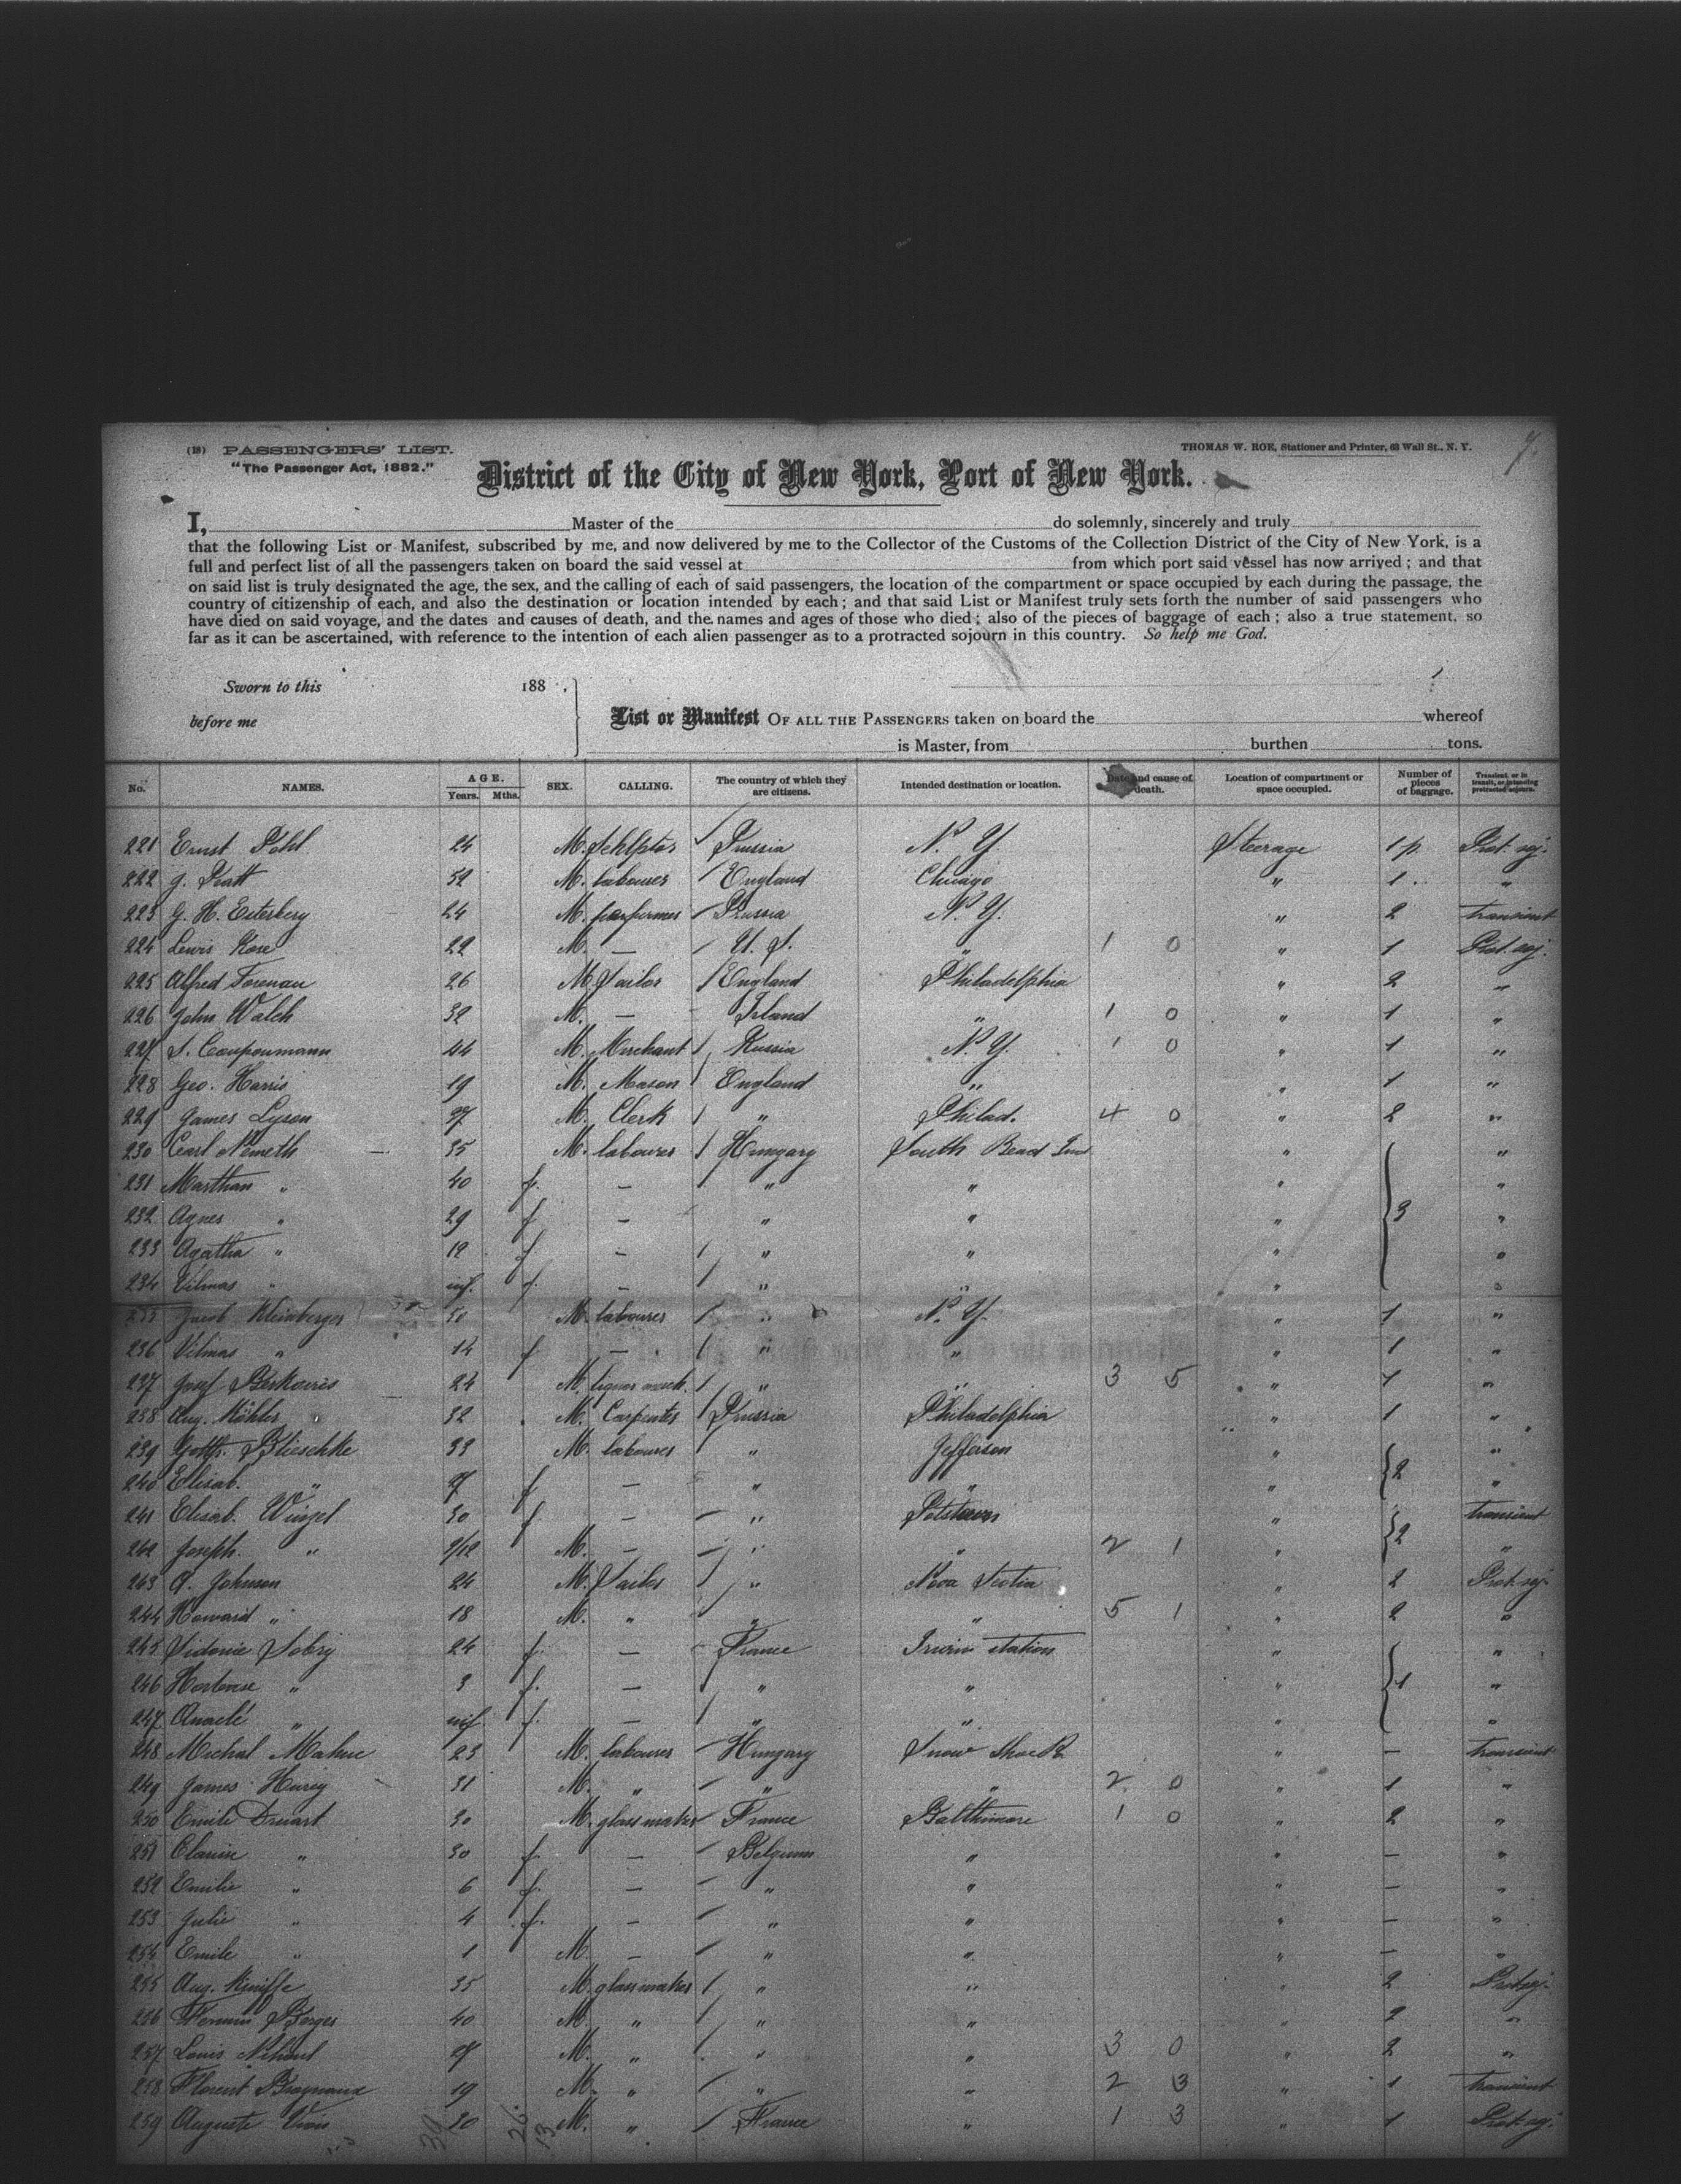 (18) PASSENGERS' LIST.
"The Passenger Act, 1882."
THOMAS W. ROE, Stationer and Printer, 63 Wall St., N. Y.
7.
District of the City of New York, Port of New York.
I, Master of the do solemnly, sincerely and truly
that the following List or Manifest, subscribed by me, and now delivered by me to the Collector of the Customs of the Collection District of the City of New York, is a
full and perfect list of all the passengers taken on board the said vessel at from which port said vessel has now arrived; and that
on said list is truly designated the age, the sex, and the calling of each of said passengers, the location of the compartment or space occupied by each during the passage, the
country of citizenship of each, and also the destination or location intended by each; and that said List or Manifest truly sets forth the number of said passengers who
have died on said voyage, and the dates and causes of death, and the names and ages of those who died; also of the pieces of baggage of each; also a true statement, so
far as it can be ascertained, with reference to the intention of each alien passenger as to a protracted sojourn in this country. So help me God.
Sworn to this 188 .
before me
List or Manifest OF ALL THE PASSENGERS taken on board the whereof
is Master, from burthen tons.
No. NAMES. AGE. Years. Mths. SEX. CALLING. The country of which they are citizens. Intended destination or location. Date and cause of death. Location of compartment or space occupied. Number of pieces of baggage. Transient or in transit, or intending protracted sojourn.
221 Ernst Pohl 24 M. Schlptor Prussia N. Y. Steerage 1 p. Prot. soj.
222 J. Pratt 52 M. labourer England Chicago " 1 "
223 G. H. Esterberg 24 M. Prussia N. Y. " 2 transient
224 Lewis Rose 22 M. — U. S. " 1 0 " 1 Prot. soj.
225 Alfred 26 M. Sailor England Philadelphia " 2 "
226 John Walch 32 M. — Irland " 1 0 " 1 "
227 S. Coupoumann 44 M. Merchant Russia N. Y. 1 0 " 1 "
228 Geo. Harris 19 M. Mason England " " 1 "
229 James Lyson 27 M. Clerk " Philad. 4 0 " 2 "
230 Carl Nemeth 35 M. labourer Hungary South Bend Ind " 3 "
231 Marthan " 40 f. — " " " "
232 Agnes " 29 f — " " " "
233 Agatha " 19 f — " " " "
234 Vilmas " inf. f. — " " " "
235 Jacob Weinberger 50 M. labourer " N. Y. " 1 "
236 Vilmas " 14 f — " " " 1 "
237 Josef Berkovics 24 M. liquor merch. " " 3 5 " 1 "
238 Aug. Köhler 32 M. Carpenter Prussia Philadelphia " 1 "
239 Gottfr. Blieschke 33 M. labourer " Jefferson " 2 "
240 Elisab. " 27 f — " " " "
241 Elisab. Winzel 30 f — " Potstown " 2 transient
242 Joseph. " 9/12 M. — " " 2 1 " "
243 A. Johnson 24 M. Sailor " Nova Scotia " 2 Prot. soj.
244 Howard " 18 M. " " " 5 1 " 2 "
245 Sidonie Sobry 24 f. — France Irwin station " 1 "
246 Hortense " 3 f. — " " " "
247 " inf f. — " " " "
248 Michal Mahuc 23 M. labourer Hungary Snow Shoe " — transient
249 James 31 M. " " " 2 0 " 1 "
250 Emile Druart 30 M. glassmaker France Balthimore 1 0 " 2 "
251 " 30 f. — Belgium " " — "
252 Emilie " 6 f. — " " " — "
253 Julie " 4 f. — " " " — "
254 Emile " 1 M. — " " " — "
255 Aug. 35 M. glassmaker " " " 2 Prot. soj.
256 Borges 40 M. " " " " 2 "
257 Louis 27 M. " " " 3 0 " 2 "
258 Florent 19 M. " " " 2 3 " 1 transient
259 Auguste 20 M. " France " 1 3 " 1 Prot. soj.
39 26. 13